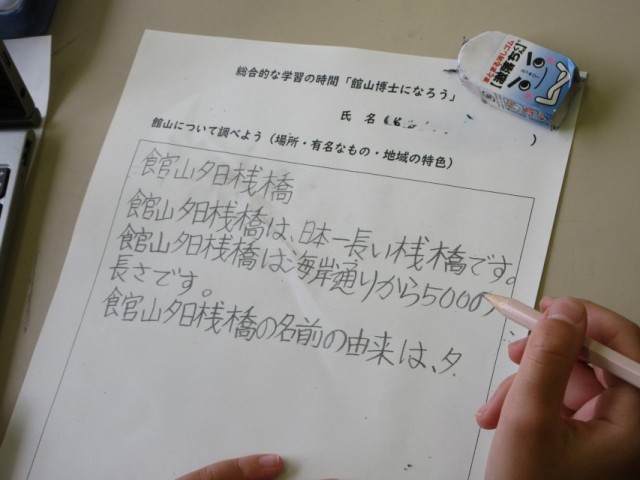 総合的な学習の時間「館山博士になろう」
氏 名 (
)
館山について調べよう（場所・有名なもの・地域の特色）
館山夕日桟橋
館山夕日桟橋は、日本一長い桟橋です。
館山夕日桟橋は海岸通りから500の
長さです。
館山夕日桟橋の名前の由来は、夕